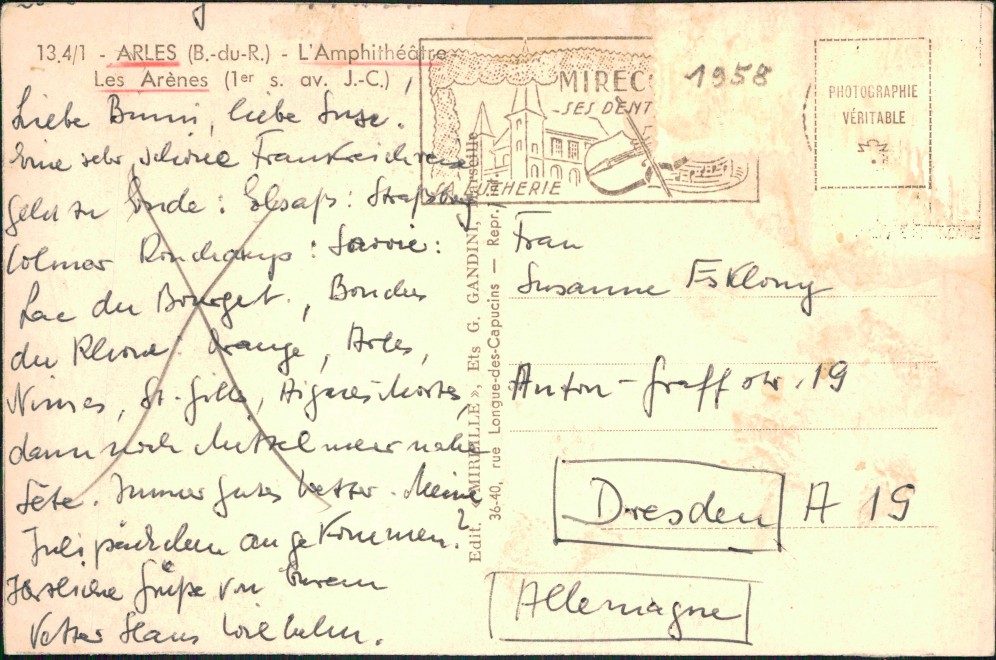 13.4/1 - ARLES (B.-du-R.) - L'Amphithéâtre
Les Arènes (1er s. av. J.-C.)
Liebe Bunni, liebe Suse.
Eine sehr schöne Frankreichreise
geht zu Ende: Elsaß: Straßburg
Colmar Ronchamp: Savoie:
Lac du Bourget, Bouches
du Rhone: Orange, Arles,
Nimes, St. Gilles, Aigues Mortes,
dann noch Mittelmeer nahe
Sète. Immer gutes Wetter. Meine
Julipäckchen angekommen?
Herzliche Grüße von Eurem
Vetter Hans Wilhelm.
Edit. « MIREILLE », Ets G. GANDINI, Marseille
36-40, rue Longue-des-Capucins — Repr.
MIREC
- SES DENT
LUTHERIE
1958
PHOTOGRAPHIE
VÉRITABLE
Frau
Susanne Esklony
Anton-Graffstr. 19
Dresden A 19
Allemagne